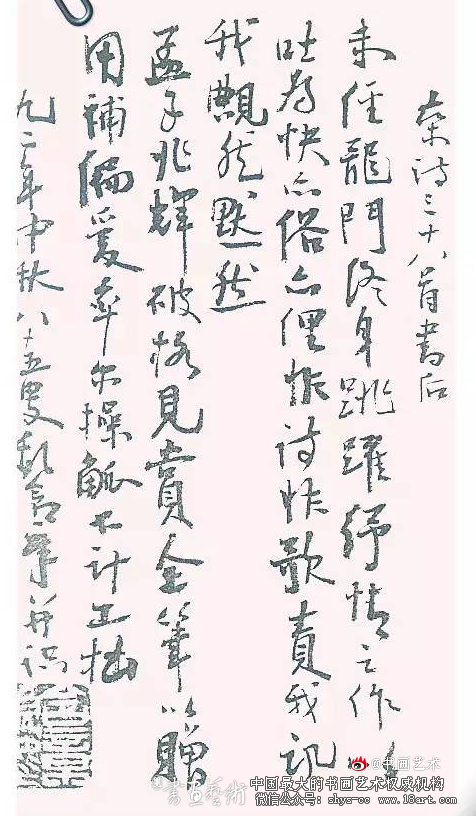 杂诗三十八首書后
未經龍門终身跳躍纾情之作以
吐为快亦俗亦俚非诗非歌责我訊
我靦然默然
孟子兆輝破格見賞金筆以贈
用補偏爱率尔操觚不计工拙
九二年中秋八十五叟并识
@书画艺术
書画藝術
中国最大的书画艺术权威机构
微信公众号：shys-cc www.18art.com